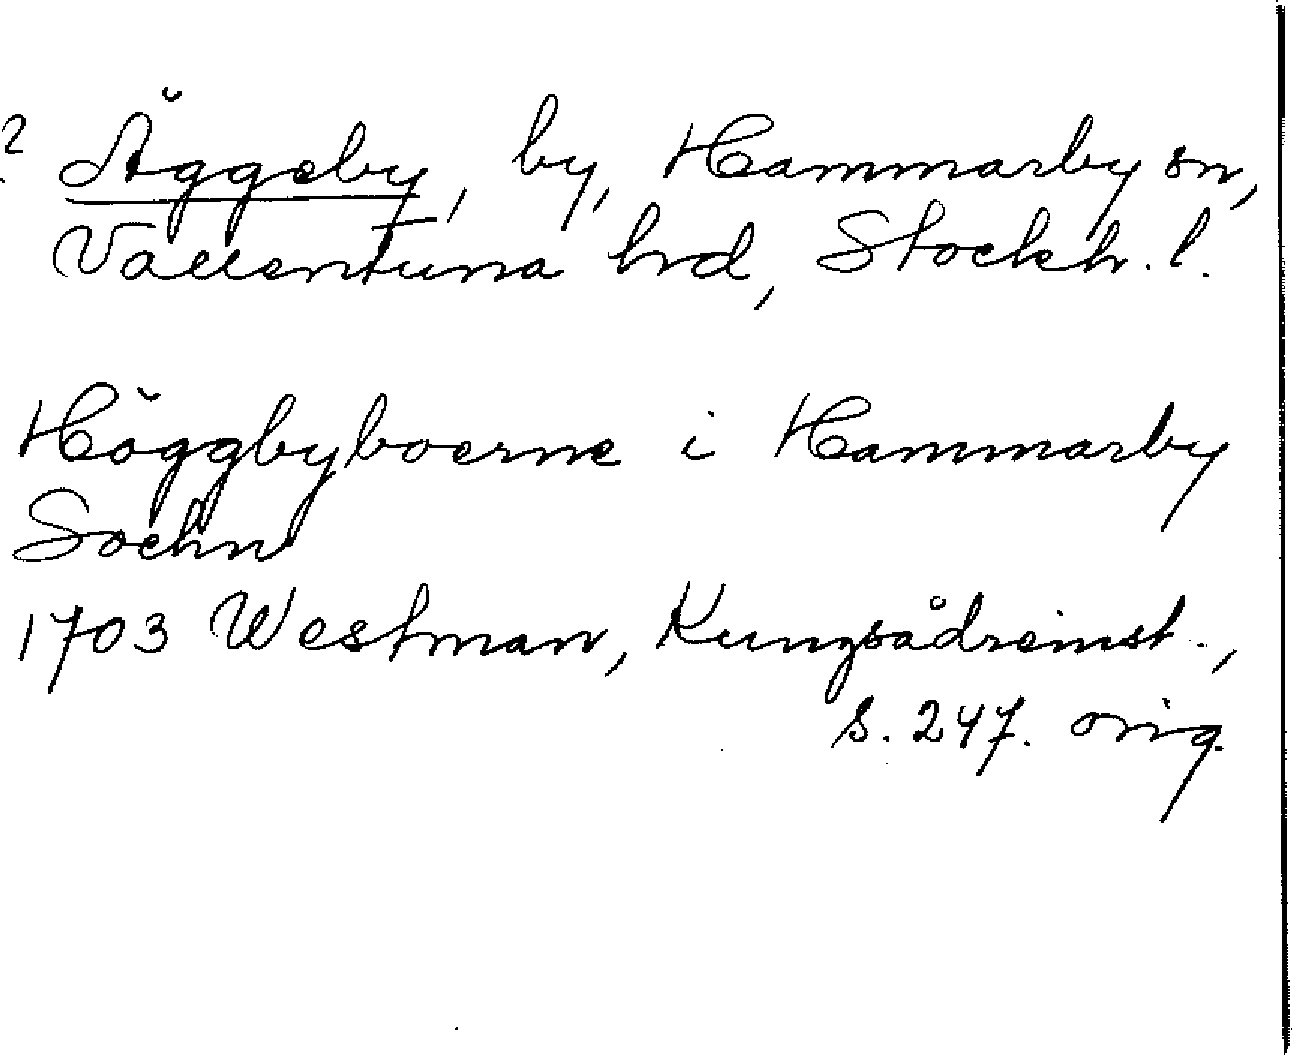 ? Äggeby, by, Hammarby sn,
Vallentuna hrd, Stockh. l.
Häggbyboerne i Hammarby
Sochn
1703 Westman, Kungsådreinst.,
s. 247. orig.